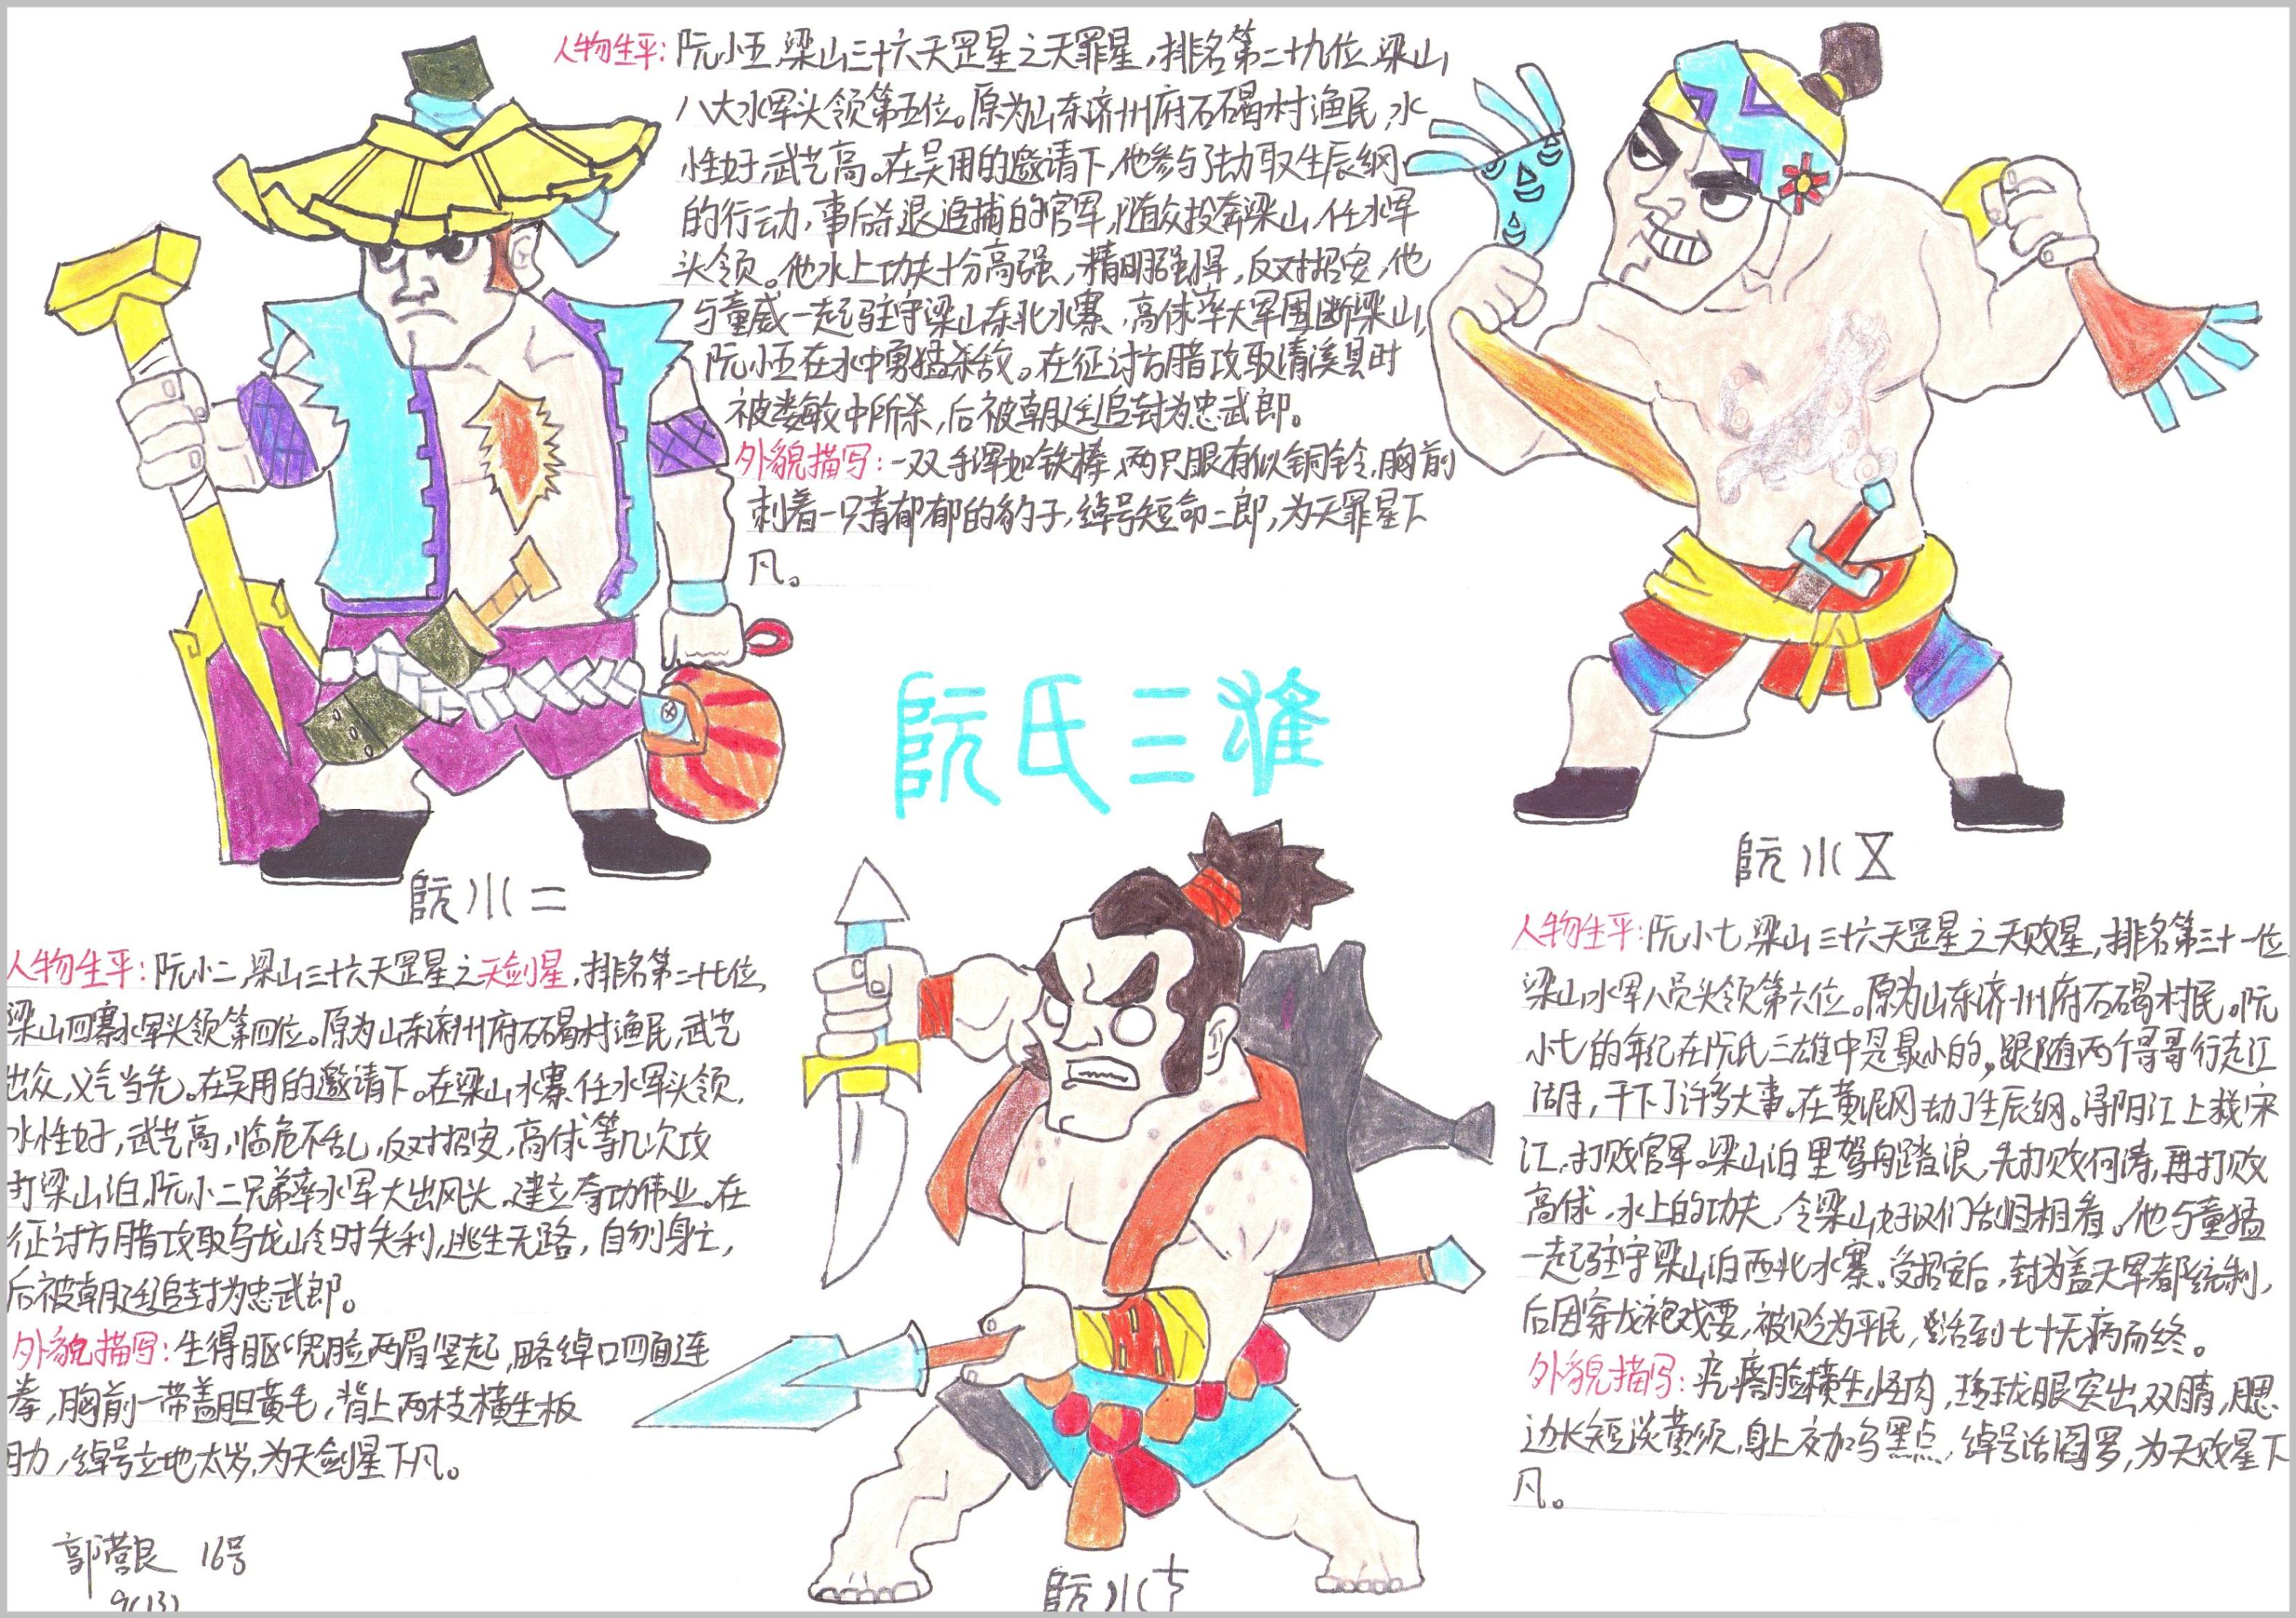 人物生平：阮小五，梁山三十六天罡星之天罪星，排名第二十九位，梁山
八大水军头领第五位。原为山东济州府石碣村渔民，水
性好，武艺高。在吴用的邀请下，他参与了劫取生辰纲
的行动，事后杀退追捕的官军，随众投奔梁山，任水军
头领。他水上功夫十分高强，精明强悍，反对招安，他
与童威一起驻守梁山东北水寨，高俅率大军围断梁山，
阮小五在水中勇猛杀敌。在征讨方腊攻取清溪县时
被娄敏中所杀，后被朝廷追封为忠武郎。
外貌描写：一双手浑如铁棒，两只眼有似铜铃，胸前
刺着一只青郁郁的豹子，绰号短命二郎，为天罪星下
凡。
阮氏三雄
阮小二
阮小五
阮小七
人物生平：阮小二，梁山三十六天罡星之天剑星，排名第二十七位，
梁山四寨水军头领第四位。原为山东济州府石碣村渔民，武艺
出众，义气当先。在吴用的邀请下。在梁山水寨任水军头领，
水性好，武艺高，临危不乱，反对招安，高俅等几次攻
打梁山泊，阮小二兄弟率水军大出风头，建立奇功伟业。在
征讨方腊攻取乌龙岭时失利，逃生无路，自刎身亡，
后被朝廷追封为忠武郎。
外貌描写：生得眍兜脸两眉竖起，略绰口四面连
拳，胸前一带盖胆黄毛，背上两枝横生板
肋，绰号立地太岁，为天剑星下凡。
人物生平：阮小七，梁山三十六天罡星之天败星，排名第三十一位
梁山水军八员头领第六位。原为山东济州府石碣村民。阮
小七的年纪在阮氏三雄中是最小的，跟随两个哥哥行走江
湖，干下了许多大事。在黄泥冈劫了生辰纲。浔阳江上救宋
江，打败官军。梁山泊里驾舟踏浪，先打败何涛，再打败
高俅，水上的功夫，令梁山好汉们刮目相看。他与童猛
一起驻守梁山泊西北水寨。受招安后，封为盖天军都统制，
后因穿龙袍戏耍，被贬为平民，活到七十无病而终。
外貌描写：疙瘩脸横生怪肉，玲珑眼突出双睛，腮
边长短淡黄须，身上交加乌黑点，绰号活阎罗，为天败星下
凡。
郭 良 16号
9(13)